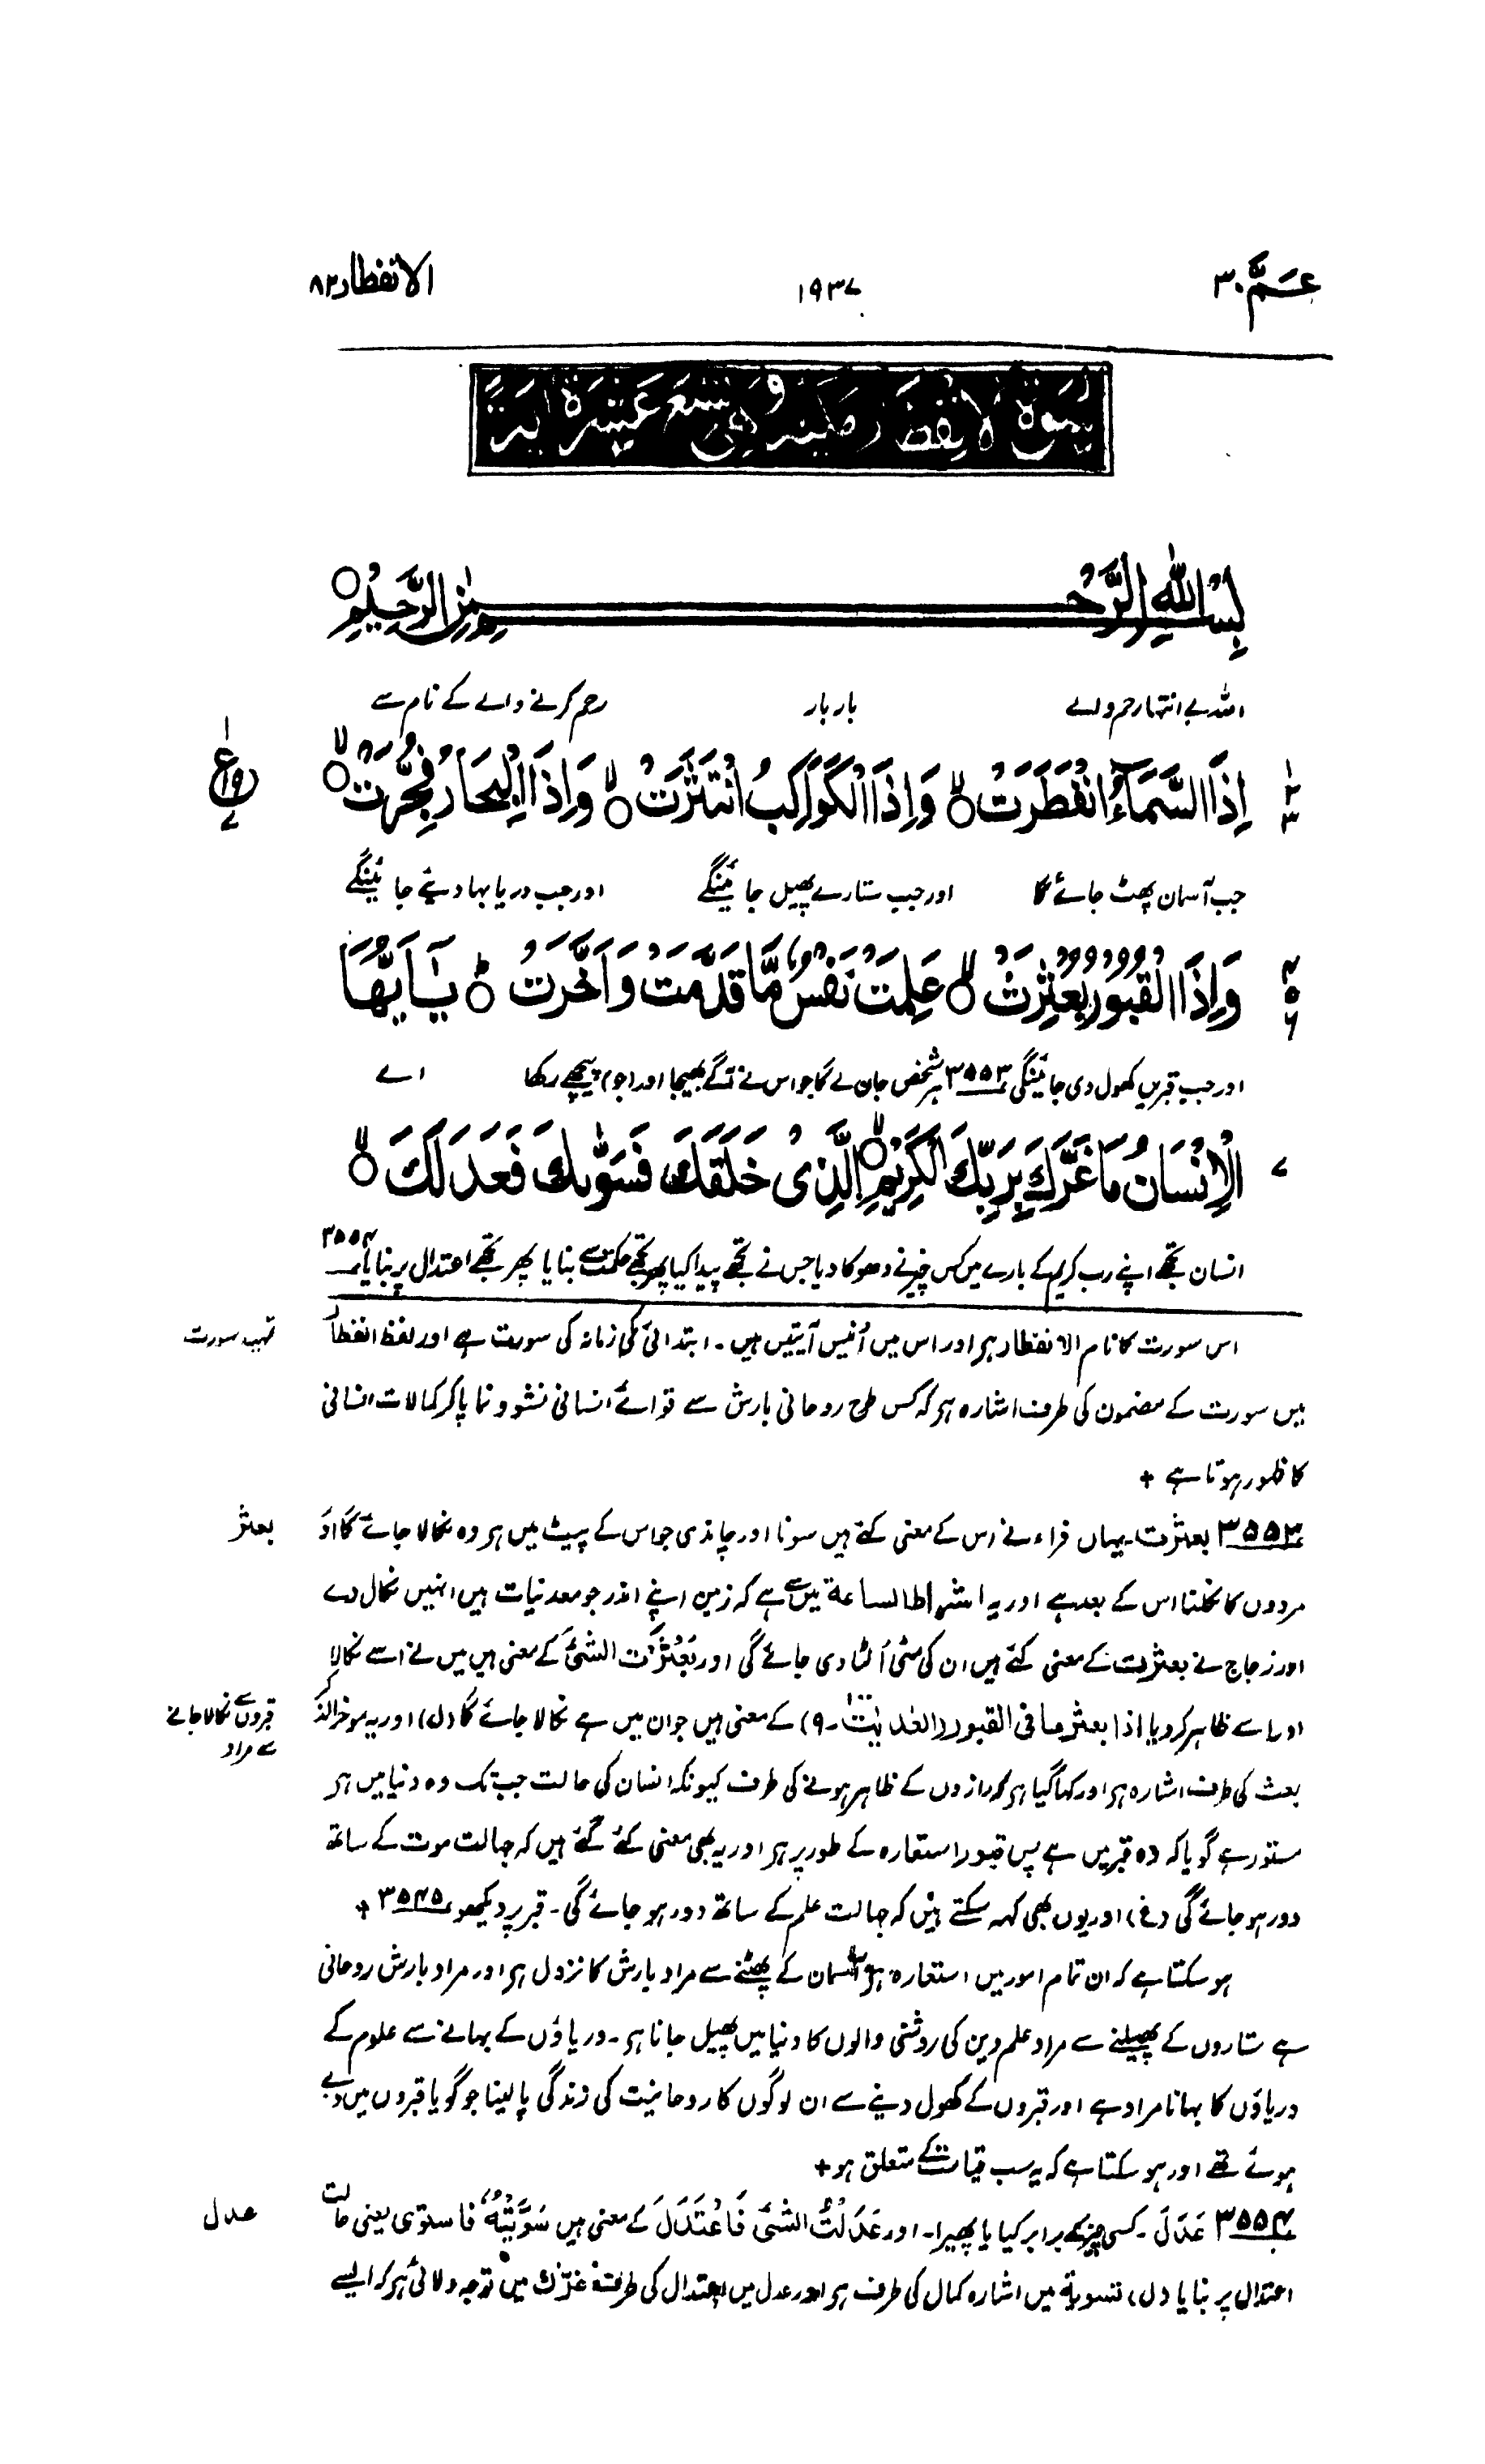 عَمَّ ٣٠
١٩٣٧
الانفطار ٨٢
سورة الانفطار مكية وهي تسع عشرة آية
بِسْمِ اللّٰهِ الرَّحْمٰنِ الرَّحِيْمِ
اللہ بے انتہا رحم والے بار بار رحم کرنے والے کے نام سے
اِذَا السَّمَآءُ انْفَطَرَتْ ۙ وَاِذَا الْكَوَاكِبُ انْتَثَرَتْ ۙ وَاِذَا الْبِحَارُ فُجِّرَتْ ۙ
جب آسمان پھٹ جائے گا اور جب ستارے پھیل جائینگے اور جب دریا بہا دیئے جائینگے
وَاِذَا الْقُبُوْرُ بُعْثِرَتْ ۙ عَلِمَتْ نَفْسٌ مَّا قَدَّمَتْ وَاَخَّرَتْ ؕ يٰٓاَيُّهَا
اور جب قبریں کھول دی جائینگی ۳۵۵۳ ہر شخص جان لے گا جو اس نے آگے بھیجا اور (جو) پیچھے رکھا اے
الْاِنْسَانُ مَا غَرَّكَ بِرَبِّكَ الْكَرِيْمِ ۙ الَّذِيْ خَلَقَكَ فَسَوّٰىكَ فَعَدَلَكَ ۙ
انسان تجھے اپنے رب کریم کے بارے میں کس چیز نے دھوکا دیا جس نے تجھے پیدا کیا پھر تجھے حکمت سے بنایا پھر تجھے اعتدال پر بنایا ۳۵۵۴
تمہید سورت
اس سورت کا نام الانفطار ہے اور اس میں اُنیس آیتیں ہیں۔ ابتدائی مکی زمانہ کی سورت ہے اور لفظ انفطار
میں سورت کے مضمون کی طرف اشارہ ہے کہ کس طرح روحانی بارش سے قوائے انسانی نشو و نما پا کر کمالات انسانی
کا ظہور ہوتا ہے +
بعثر
۳۵۵۳ بعثرت۔ یہاں فراء نے اس کے معنی کئے ہیں سونا اور چاندی جو اس کے پیٹ میں ہے وہ نکالا جائے گا اور
مردوں کا نکلنا اس کے بعد ہے اور یہ اشراط الساعة میں سے ہے کہ زمین اپنے اندر جو معدنیات ہیں انہیں نکال دے
اور زجاج نے بعثرت کے معنی کئے ہیں ان کی مٹی اُلٹا دی جائے گی اور بَعْثَرْتُ الشئَ کے معنی ہیں میں نے اسے نکالا
قبروں سے نکالا جانے سے مراد
اور اسے ظاہر کر دیا اذا بعثر ما فی القبور (العٰدیٰت۔ ۹) کے معنی ہیں جو ان میں ہے نکالا جائے گا (ل) اور یہ موخرالذکر
بعث کی طرف اشارہ ہے اور کہا گیا ہے کہ رازوں کے ظاہر ہونے کی طرف کیونکہ انسان کی حالت جب تک وہ دنیا میں ہے
مستور ہے گویا کہ وہ قبر میں ہے پس قبور استعارہ کے طور پر ہے اور یہ بھی معنی کئے گئے ہیں کہ جہالت موت کے ساتھ
دور ہو جائے گی (غ) اور یوں بھی کہہ سکتے ہیں کہ جہالت علم کے ساتھ دور ہو جائے گی۔ قبر پر دیکھو ۳۵۴۵ +
ہو سکتا ہے کہ ان تمام امور میں استعارہ ہو آسمان کے پھٹنے سے مراد بارش کا نزول ہے اور مراد بارش روحانی
ہے ستاروں کے پھیلنے سے مراد علم دین کی روشنی والوں کا دنیا میں پھیل جانا ہے۔ دریاؤں کے بہانے سے علوم کے
دریاؤں کا بہانا مراد ہے اور قبروں کے کھول دینے سے ان لوگوں کا روحانیت کی زندگی پا لینا جو گویا قبروں میں دبے
ہوئے تھے اور ہو سکتا ہے کہ یہ سب قیامت کے متعلق ہو +
عدل
۳۵۵۴ عَدَلَ۔ کسی چیز کے برابر کیا یا پھیرا۔ اور عَدَلْتُ الشئَ فَاعْتَدَلَ کے معنی ہیں سَوَّيْتُهٗ فاستوى یعنی حالت
اعتدال پر بنایا (ل) تسوية میں اشارہ کمال کی طرف ہے اور عدل میں اعتدال کی طرف غرّك میں توجہ دلائی ہے کہ ایسے